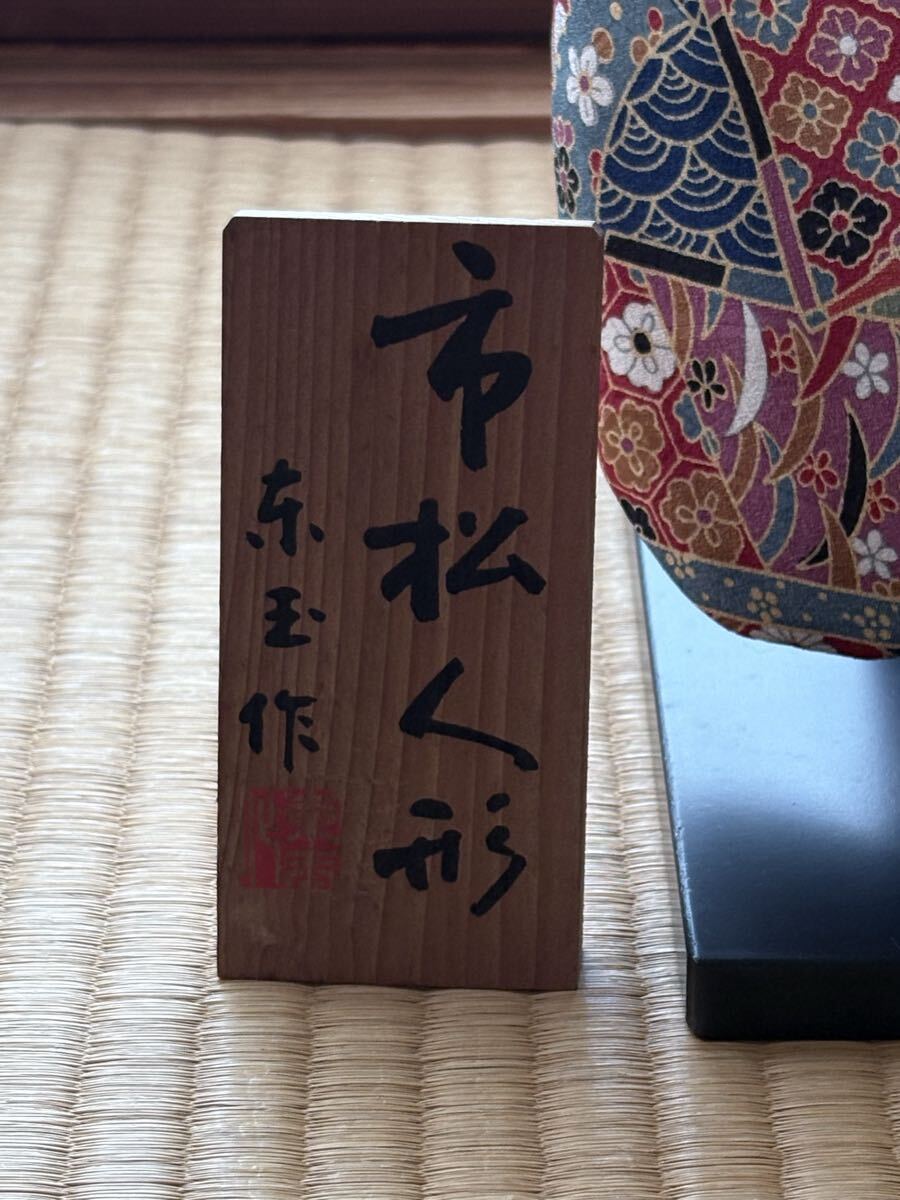 市松人形
东玉作